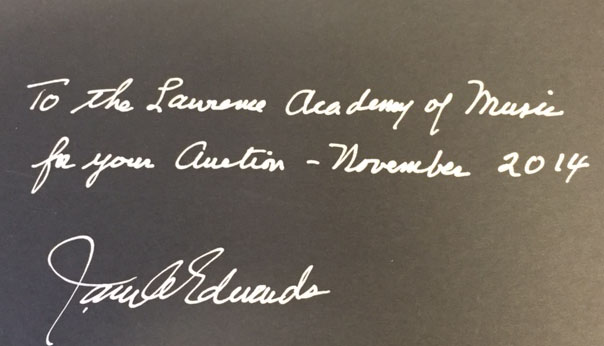 To the Lawrence Academy of Music
for your Auction - November 2014
Jack A Edwards